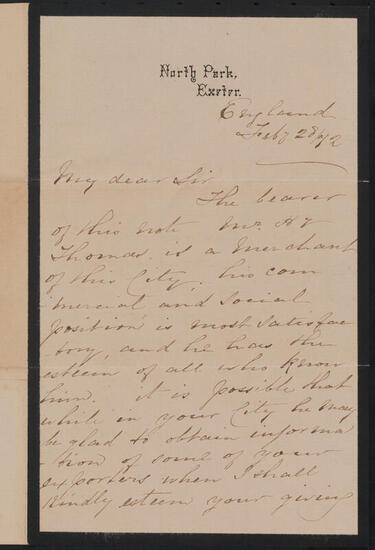 North Park,
Exeter.
England
Feby 28/72
My dear Sir
The bearer
of this note Mr. H
Thomas is a Merchant
of this City, his com
mercial and Social
position is most satisfac
tory, and he has the
esteem of all who know
him. it is possible that
while in your City he may
be glad to obtain informa
-tion of some of your
exporters when I shall
kindly esteem your giving